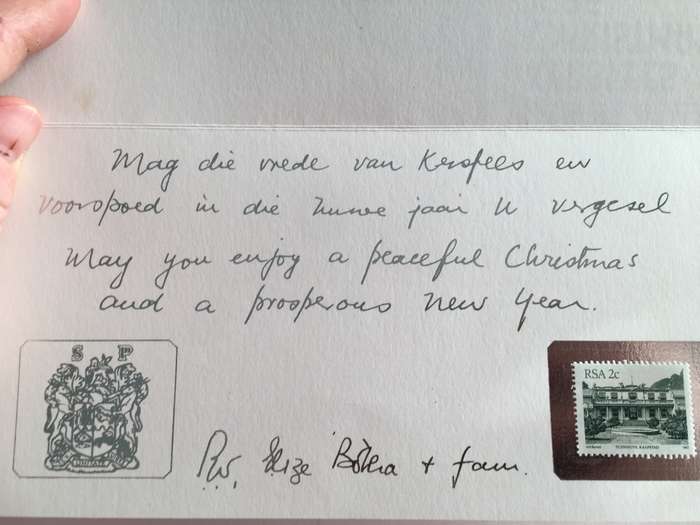 Mag die vrede van Kersfees en
voorspoed in die nuwe jaar U vergesel
May you enjoy a peaceful Christmas
and a prosperous New Year.
S P
UNITATE
RSA 2c
P.W. Elize Botha + fam.